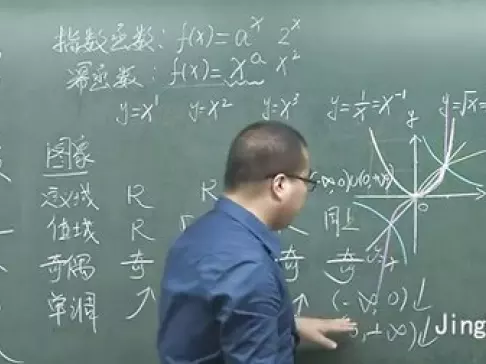 指数函数: f(x)=a^x 2^x
幂函数: f(x)=x^a x^2
y=x^1 y=x^2 y=x^3 y=1/x=x^{-1} y=√x=
图象 y
定义域 R R (-∞,0)∪(0,+∞)
O
值域 R 同上
奇偶 奇 奇 奇
单调 ↗ (-∞,0)↓
+∞)↓
Jing